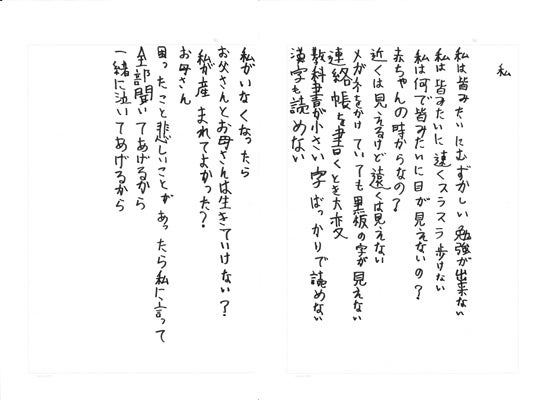 私
私は皆みたいにむずかしい勉強が出来ない
私は皆みたいに遠くスラスラ歩けない
私は何で皆みたいに目が見えないの？
赤ちゃんの時からなの？
近くは見えるけど遠くは見えない
メガネをかけていても黒板の字が見えない
連絡帳を書くとき大変
教科書が小さい字ばっかりで読めない
漢字も読めない
私がいなくなったら
お父さんとお母さんは生きていけない？
私が産まれてよかった？
お母さん
困ったこと悲しいことがあったら私に言って
全部聞いてあげるから
一緒に泣いてあげるから